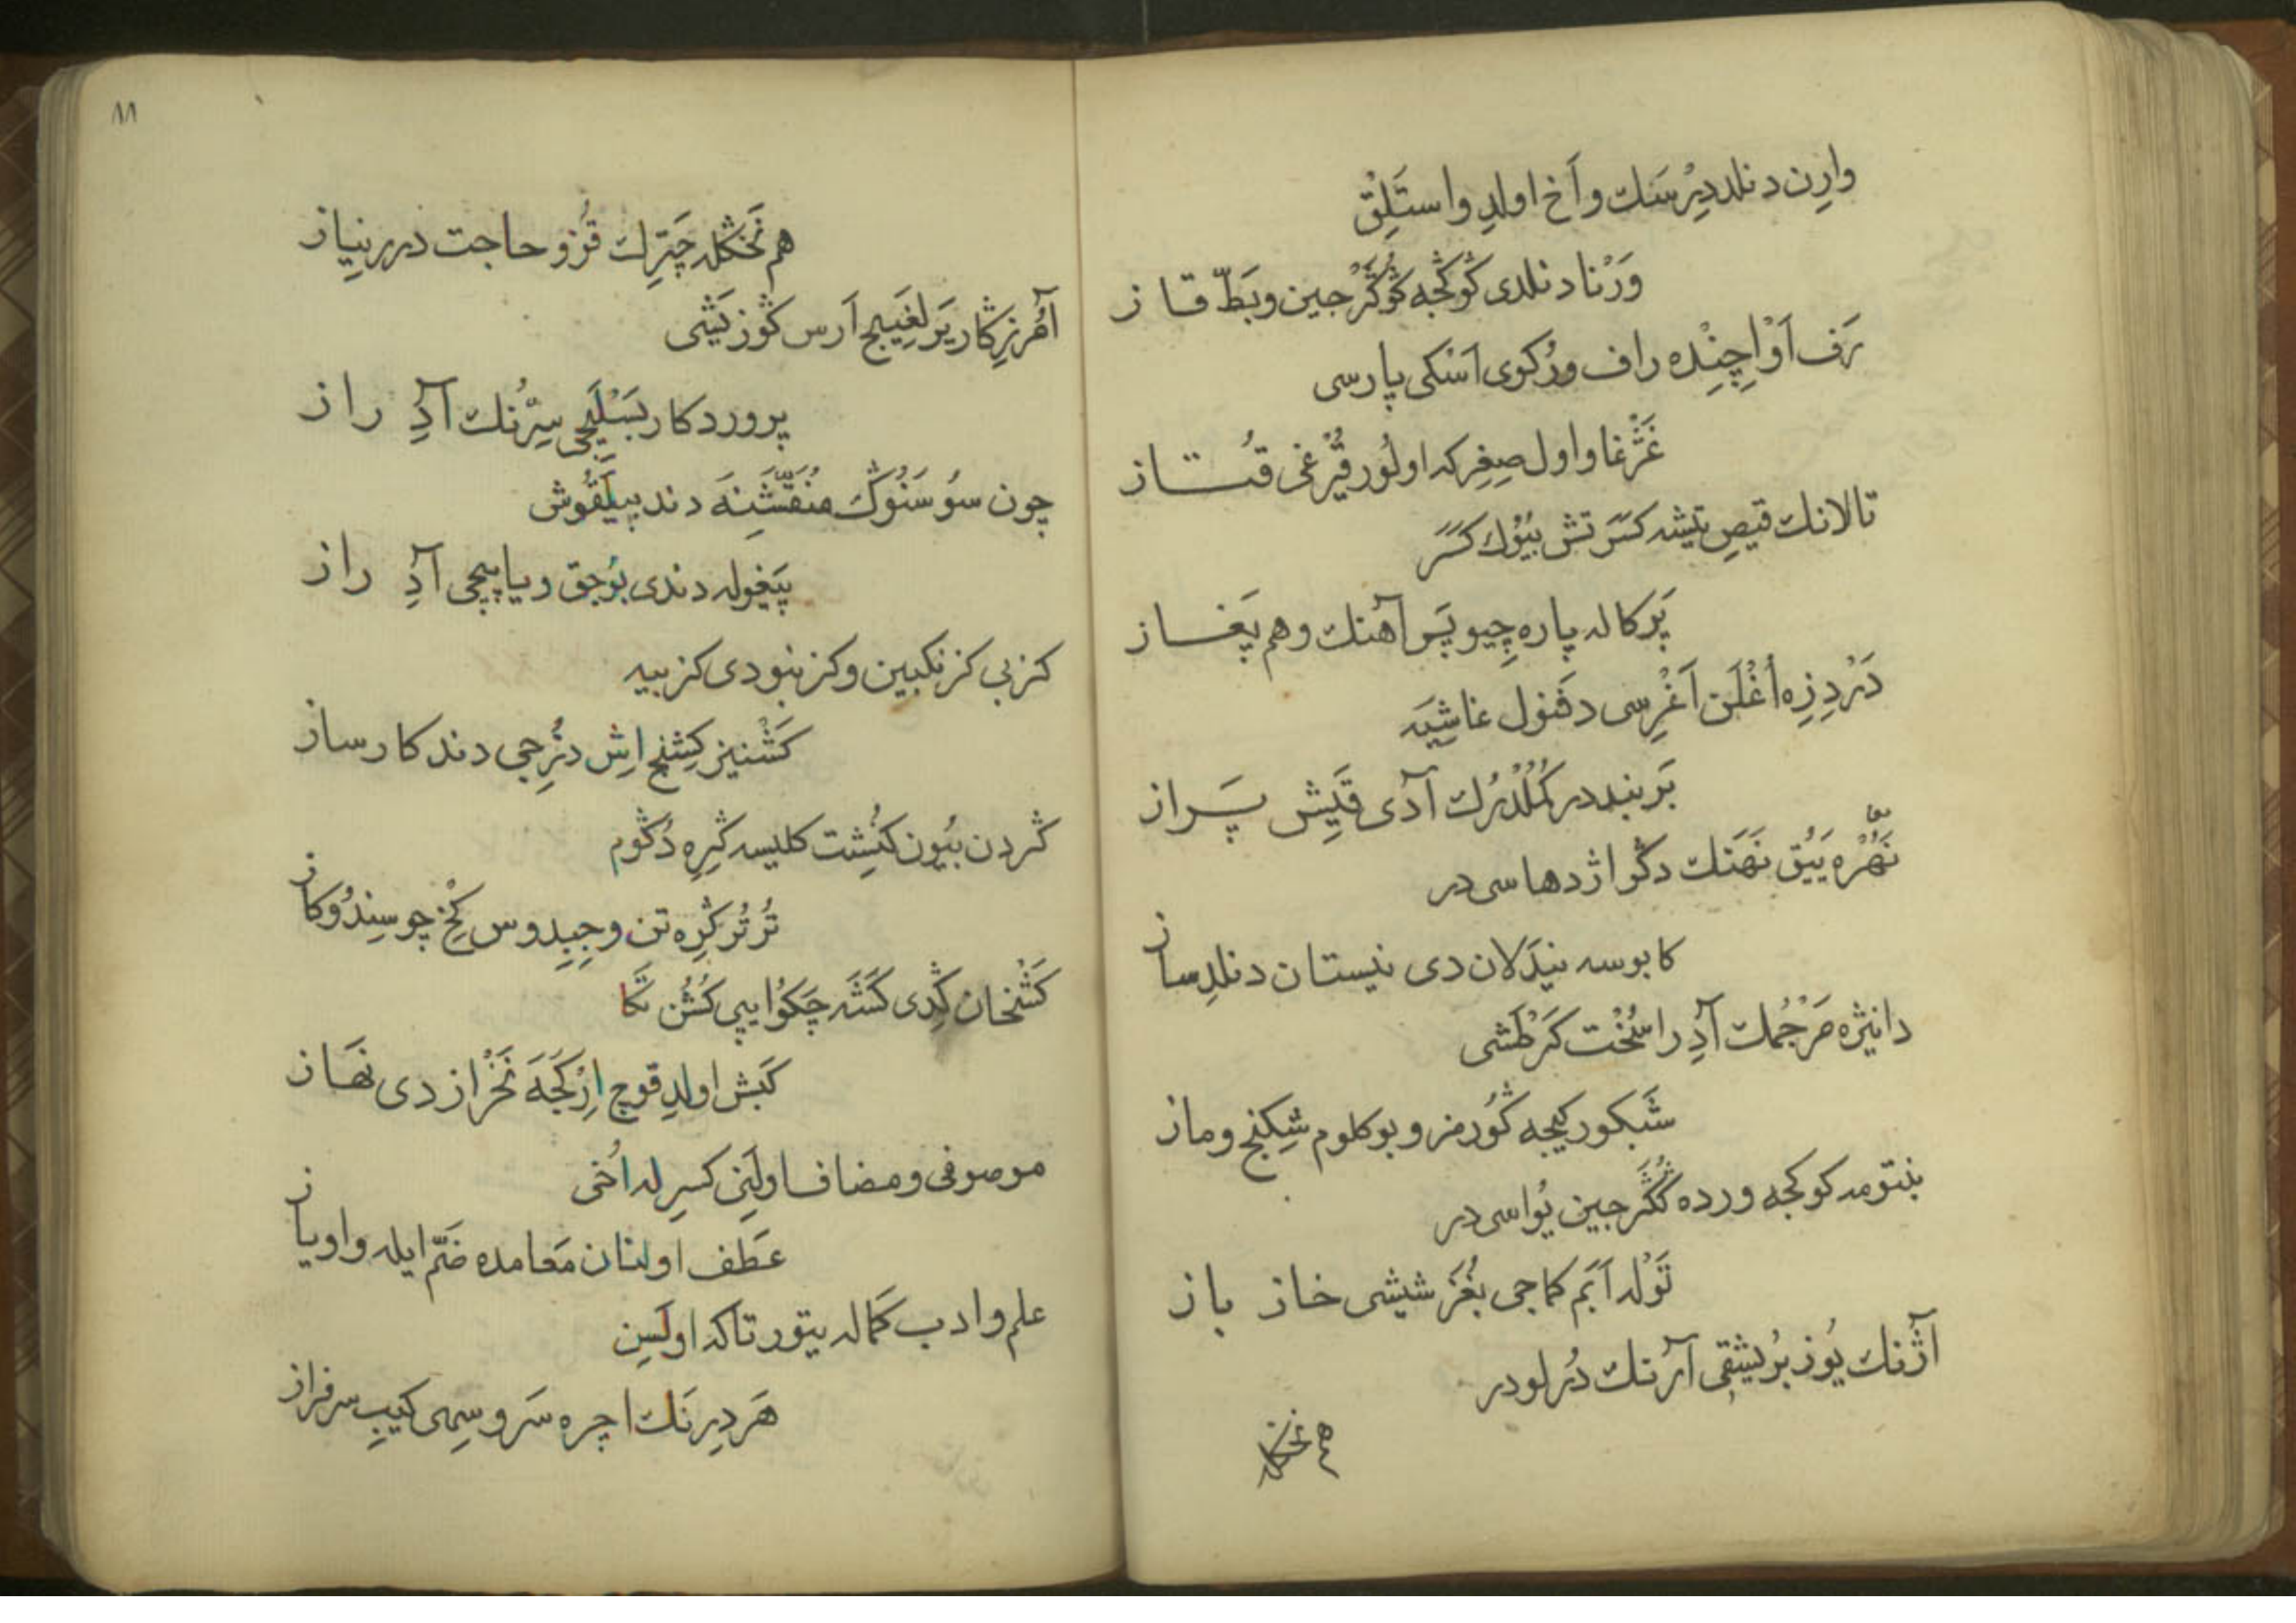 وارِن دنلد دِرْسَك و آخ اولدِ واستَلِق
وَرْنا دنلدی كُوكْجه كُوكَرْجین و بَطّ قاز
رَف آوْ اِچِنْده راف ورُكوی اَسْكی پارسی
غَژْغا و اول صِغِر كه اولُور قیْرغی قُتاز
تالانك قیصِ تیشه كَسَر تش بُیُوك كَسَر
پَركاله پاره چِیو پَس آهنك و هم پَغاز
دَرْدِ زِه اُغْلَن آغْرِسی دفنول غاشِیَه
بَربند در كُمُلْدُرُك آدی قَیِش پَراز
نَهْرْه یَیُق نَهَنك دكر اژدهاسی در
كابوسه نیدَلان دی نیستان دنلدِ ساز
دانیژه مَرْجُمك آدِ راسُخْت كَرْطَشی
شَبكور كیجه كُورمز و بوكلوم شِكنج و ماز
بنتومه كوكجه ورده كُكَرجین یُواسی در
تَوْله اَبَم كماجی بُغَز شیشی خاز باز
آژنك یُوز بُریشِقی آرنك دُرلو در
هم نخكله
٨٨
هم نَخْكله چَتِرلك قُزو حاجت درر نیاز
آمُرزِكار یَرلغَیِیج اَرس كُوز یَشی
پروردكار بَسْلَیجی سِرُّنك آدِ راز
چون سُوسَنُوك مُنَقَّشَنَه دند پیلَقُوش
پَیغوله دندی بُوجق و یا پیچی آدِ راز
كزبی كزنكبین و كزبنبودی كزبیه
كَشْنیز كِشنِج اِش دُزِجی دند كارساز
كردن بُیون كُنِشت كلیسه كِرِه دُكوم
تُرتُر كَرِه تن و جِبِدوس كخِ چو سِنْدُوكاز
كَشْخان كِدی كَشَه چَكوُا یپی كُشُن تَكا
كَبش اولدِ قوچ اِرْكَجَه نَخْراز دی نَهاز
موصوفی و مضاف اولَنی كسرِله اُخی
عَطف اولنان مَعامده ضَمّ ایله واویاز
علم و ادب كَماله یتور تاكه اولَسِن
هَر دِرنَك اچره سَرو سِهی كیبِ سرفراز